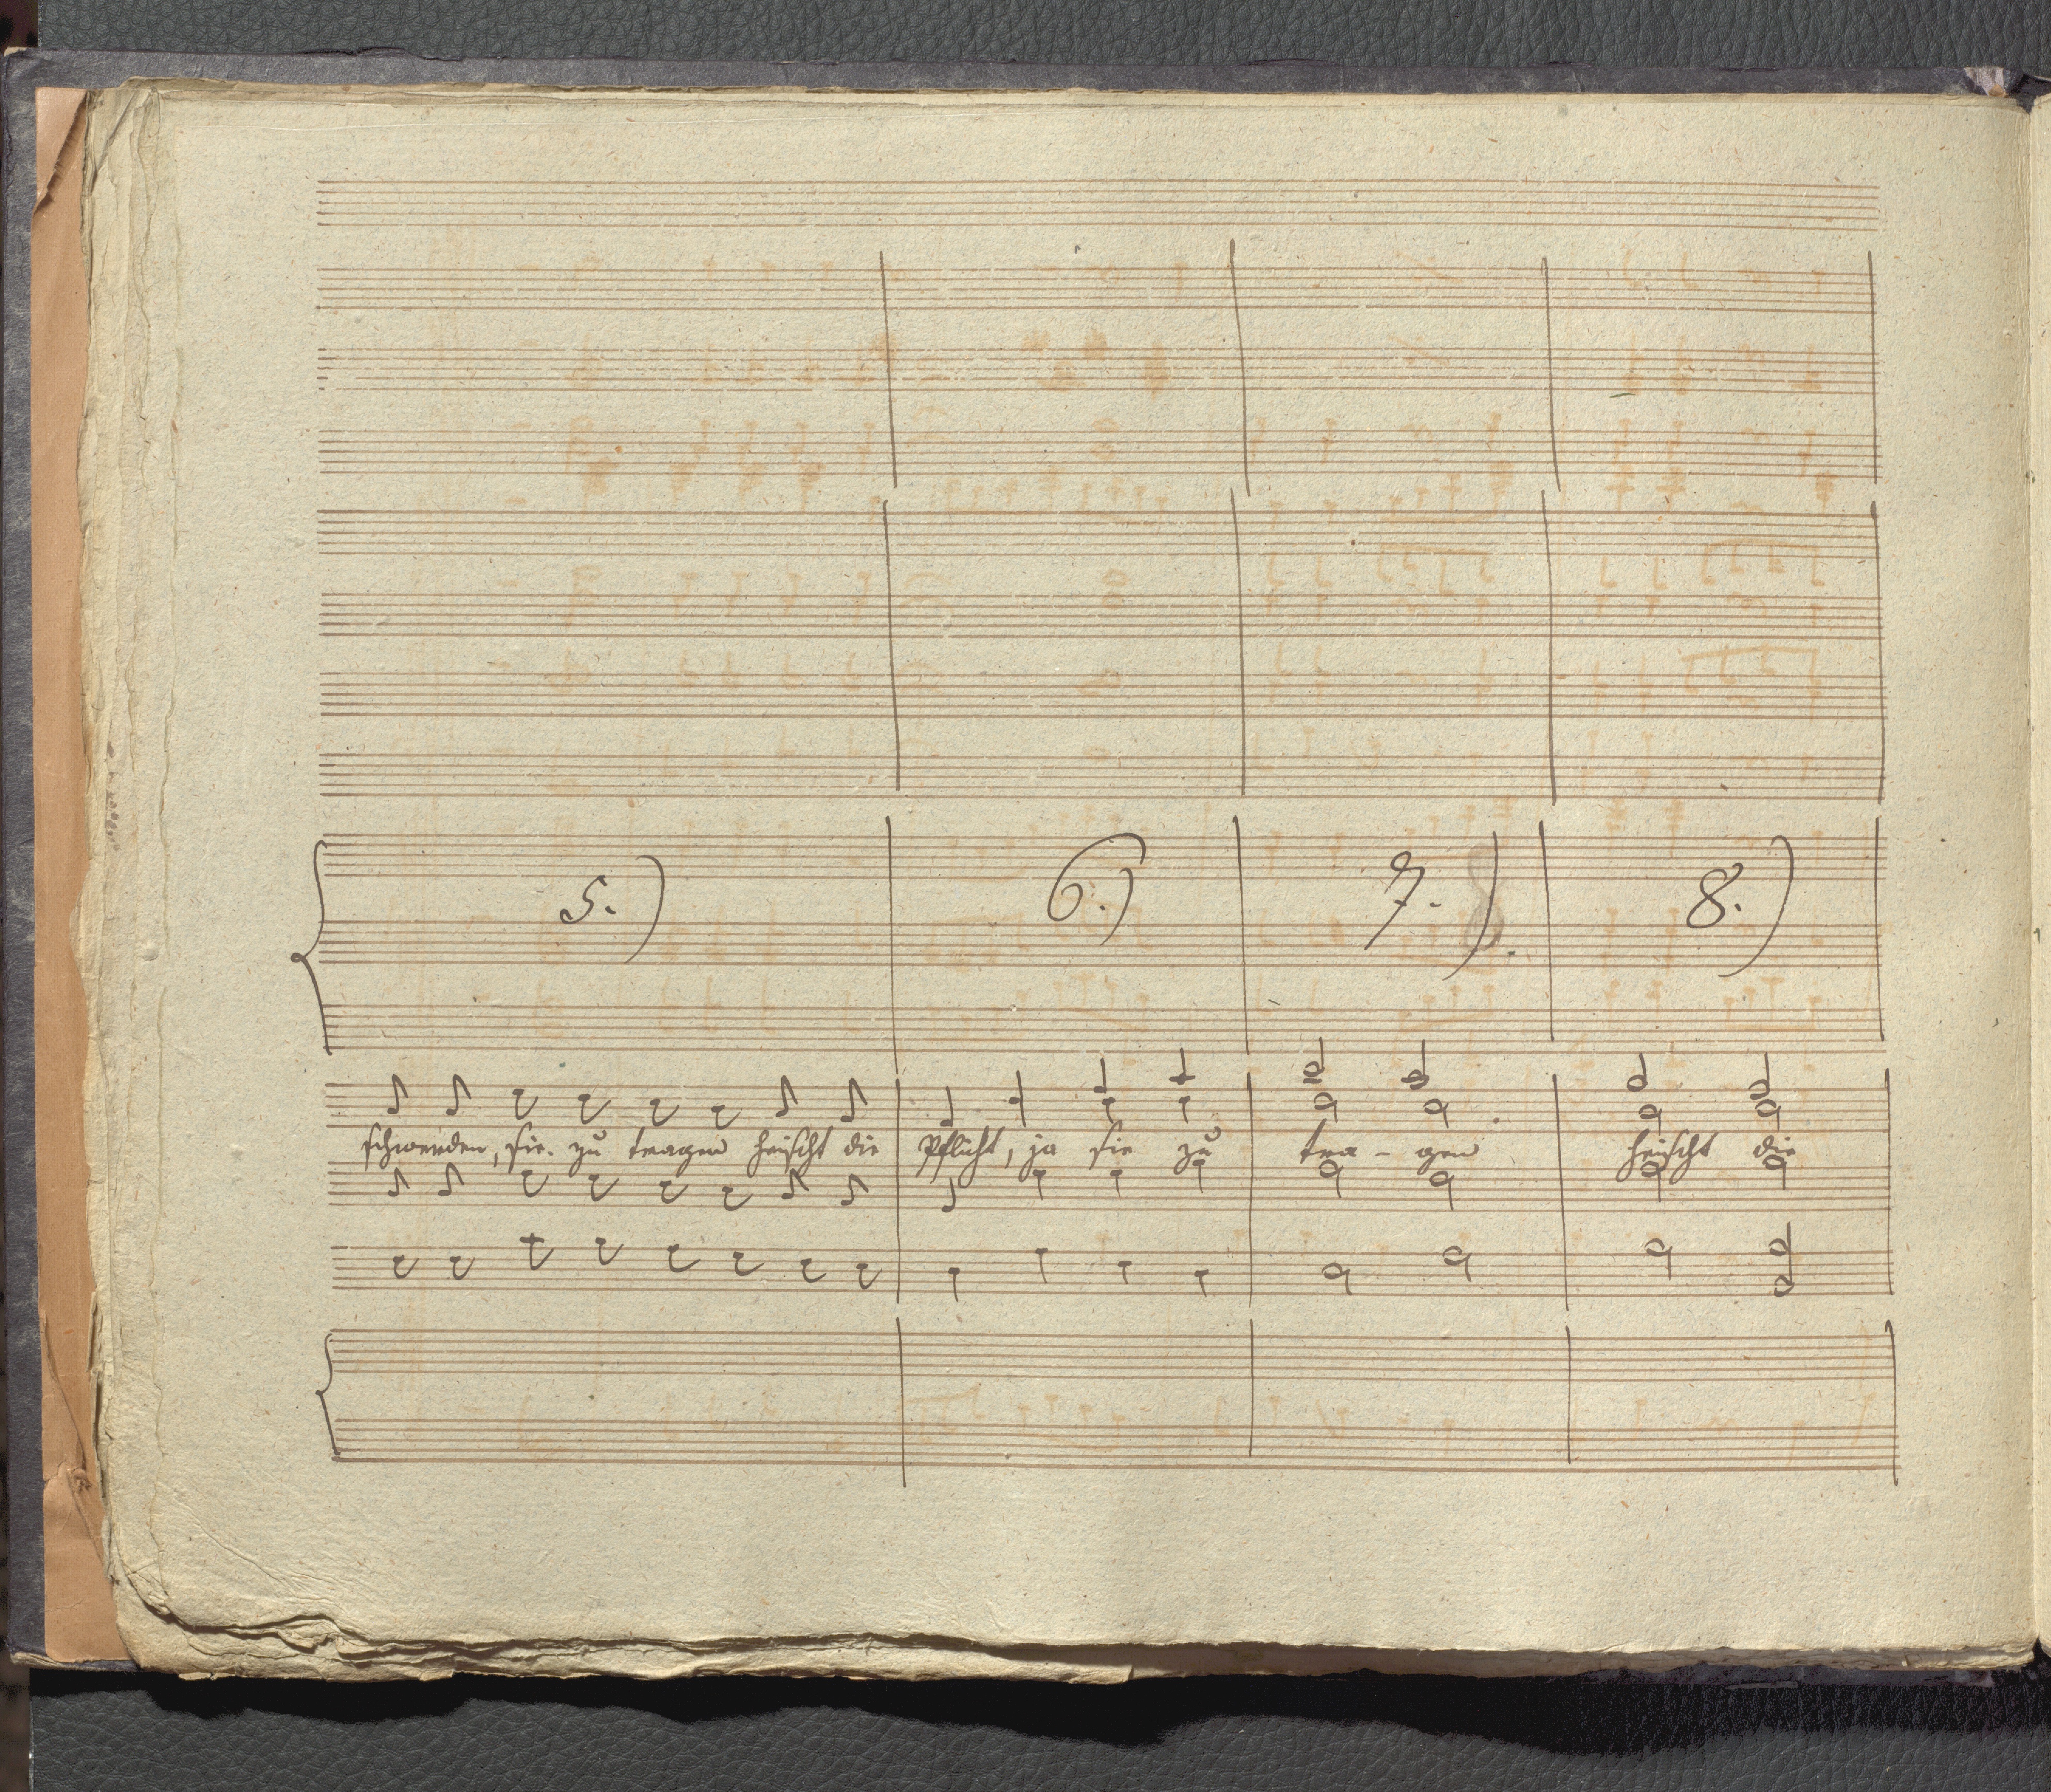 5.) 6.) 7.) 8.)
schwerden, sie zu tragen heischt die Pflicht, ja sie zu tra - gen heischt die